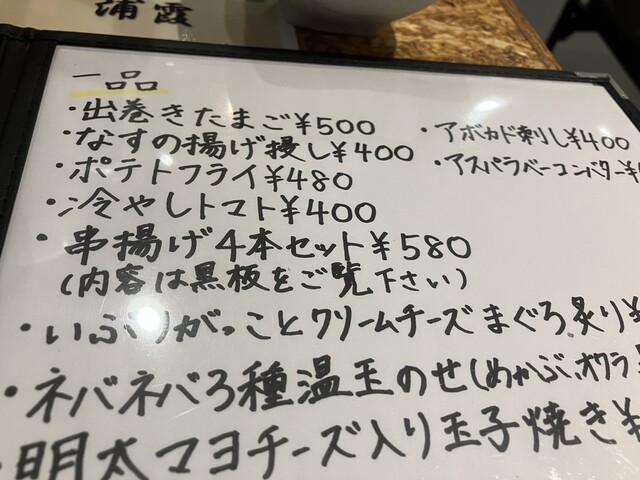 浦霞
一品
・出巻きたまご¥500
・なすの揚げ浸し¥400
・ポテトフライ¥480
・冷やしトマト¥400
・串揚げ4本セット¥580
(内容は黒板をご覧下さい)
・いぶりがっことクリームチーズまぐろ炙り¥
・ネバネバ3種温玉のせ(めかぶ、オクラ
・明太マヨチーズ入り玉子焼き¥
・アボカド刺し¥400
・アスパラベーコンバター¥